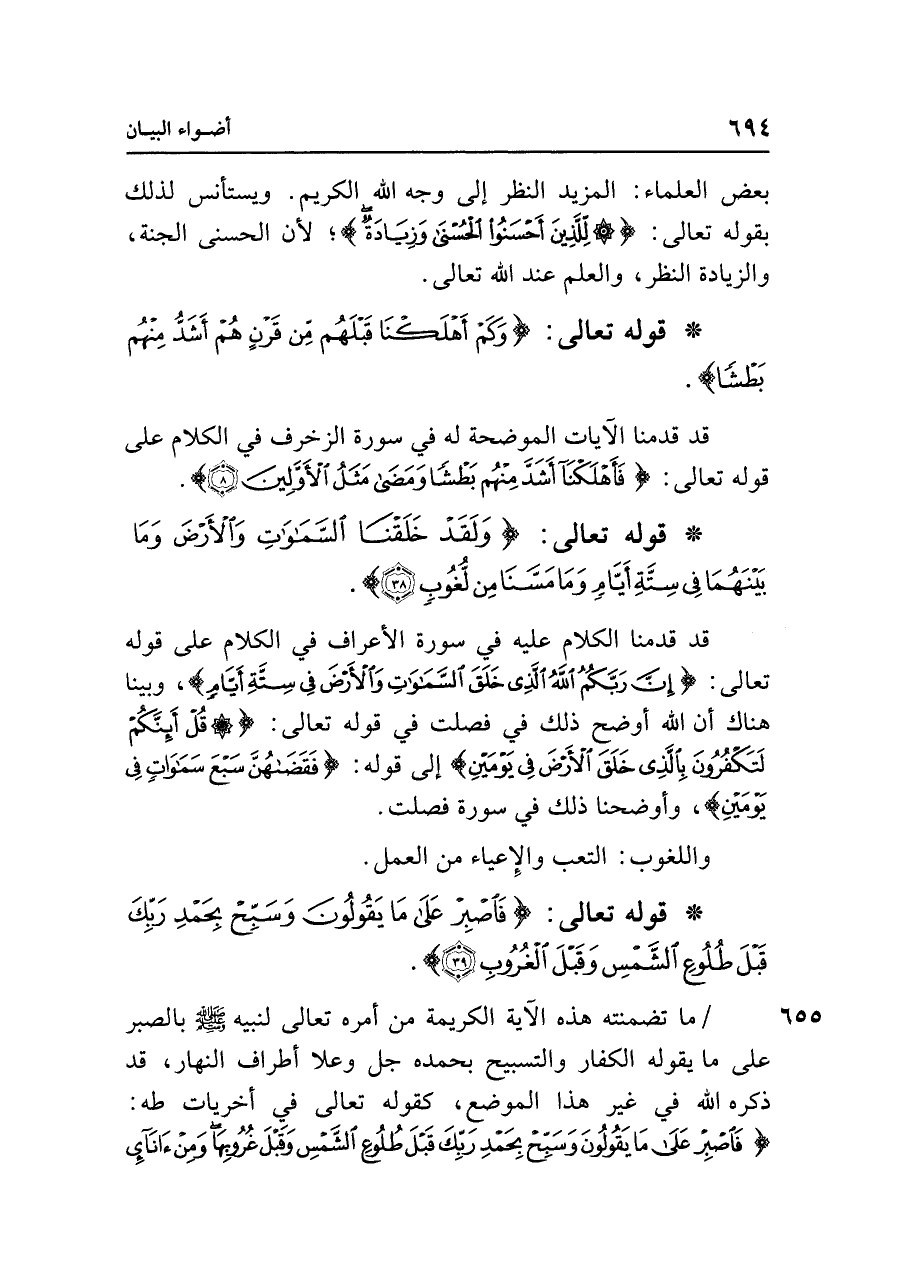 ٦٩٤ أضواء البيان
بعض العلماء: المزيد النظر إلى وجه الله الكريم. ويستأنس لذلك
بقوله تعالى: ﴿ ۞ لِّلَّذِينَ أَحْسَنُوا۟ ٱلْحُسْنَىٰ وَزِيَادَةٌۖ ﴾؛ لأن الحسنى الجنة،
والزيادة النظر، والعلم عند الله تعالى.
* قوله تعالى: ﴿ وَكَمْ أَهْلَكْنَا قَبْلَهُم مِّن قَرْنٍ هُمْ أَشَدُّ مِنْهُم
بَطْشًا﴾ .
قد قدمنا الآيات الموضحة له في سورة الزخرف في الكلام على
قوله تعالى: ﴿ فَأَهْلَكْنَآ أَشَدَّ مِنْهُم بَطْشًا وَمَضَىٰ مَثَلُ ٱلْأَوَّلِينَ ٨﴾ .
* قوله تعالى: ﴿ وَلَقَدْ خَلَقْنَا ٱلسَّمَٰوَٰتِ وَٱلْأَرْضَ وَمَا
بَيْنَهُمَا فِى سِتَّةِ أَيَّامٍ وَمَا مَسَّنَا مِن لُّغُوبٍ ٣٨﴾ .
قد قدمنا الكلام عليه في سورة الأعراف في الكلام على قوله
تعالى: ﴿ إِنَّ رَبَّكُمُ ٱللَّهُ ٱلَّذِى خَلَقَ ٱلسَّمَٰوَٰتِ وَٱلْأَرْضَ فِى سِتَّةِ أَيَّامٍ﴾، وبينا
هناك أن الله أوضح ذلك في فصلت في قوله تعالى: ﴿ ۞ قُلْ أَئِنَّكُمْ
لَتَكْفُرُونَ بِٱلَّذِى خَلَقَ ٱلْأَرْضَ فِى يَوْمَيْنِ﴾ إلى قوله: ﴿ فَقَضَىٰهُنَّ سَبْعَ سَمَٰوَاتٍ فِى
يَوْمَيْنِ﴾، وأوضحنا ذلك في سورة فصلت.
واللغوب: التعب والإعياء من العمل.
* قوله تعالى: ﴿ فَٱصْبِرْ عَلَىٰ مَا يَقُولُونَ وَسَبِّحْ بِحَمْدِ رَبِّكَ
قَبْلَ طُلُوعِ ٱلشَّمْسِ وَقَبْلَ ٱلْغُرُوبِ ٣٩﴾ .
٦٥٥ / ما تضمنته هذه الآية الكريمة من أمره تعالى لنبيه ﷺ بالصبر
على ما يقوله الكفار والتسبيح بحمده جل وعلا أطراف النهار، قد
ذكره الله في غير هذا الموضع، كقوله تعالى في أخريات طه:
﴿ فَٱصْبِرْ عَلَىٰ مَا يَقُولُونَ وَسَبِّحْ بِحَمْدِ رَبِّكَ قَبْلَ طُلُوعِ ٱلشَّمْسِ وَقَبْلَ غُرُوبِهَاۖ وَمِنْ ءَانَآئِ